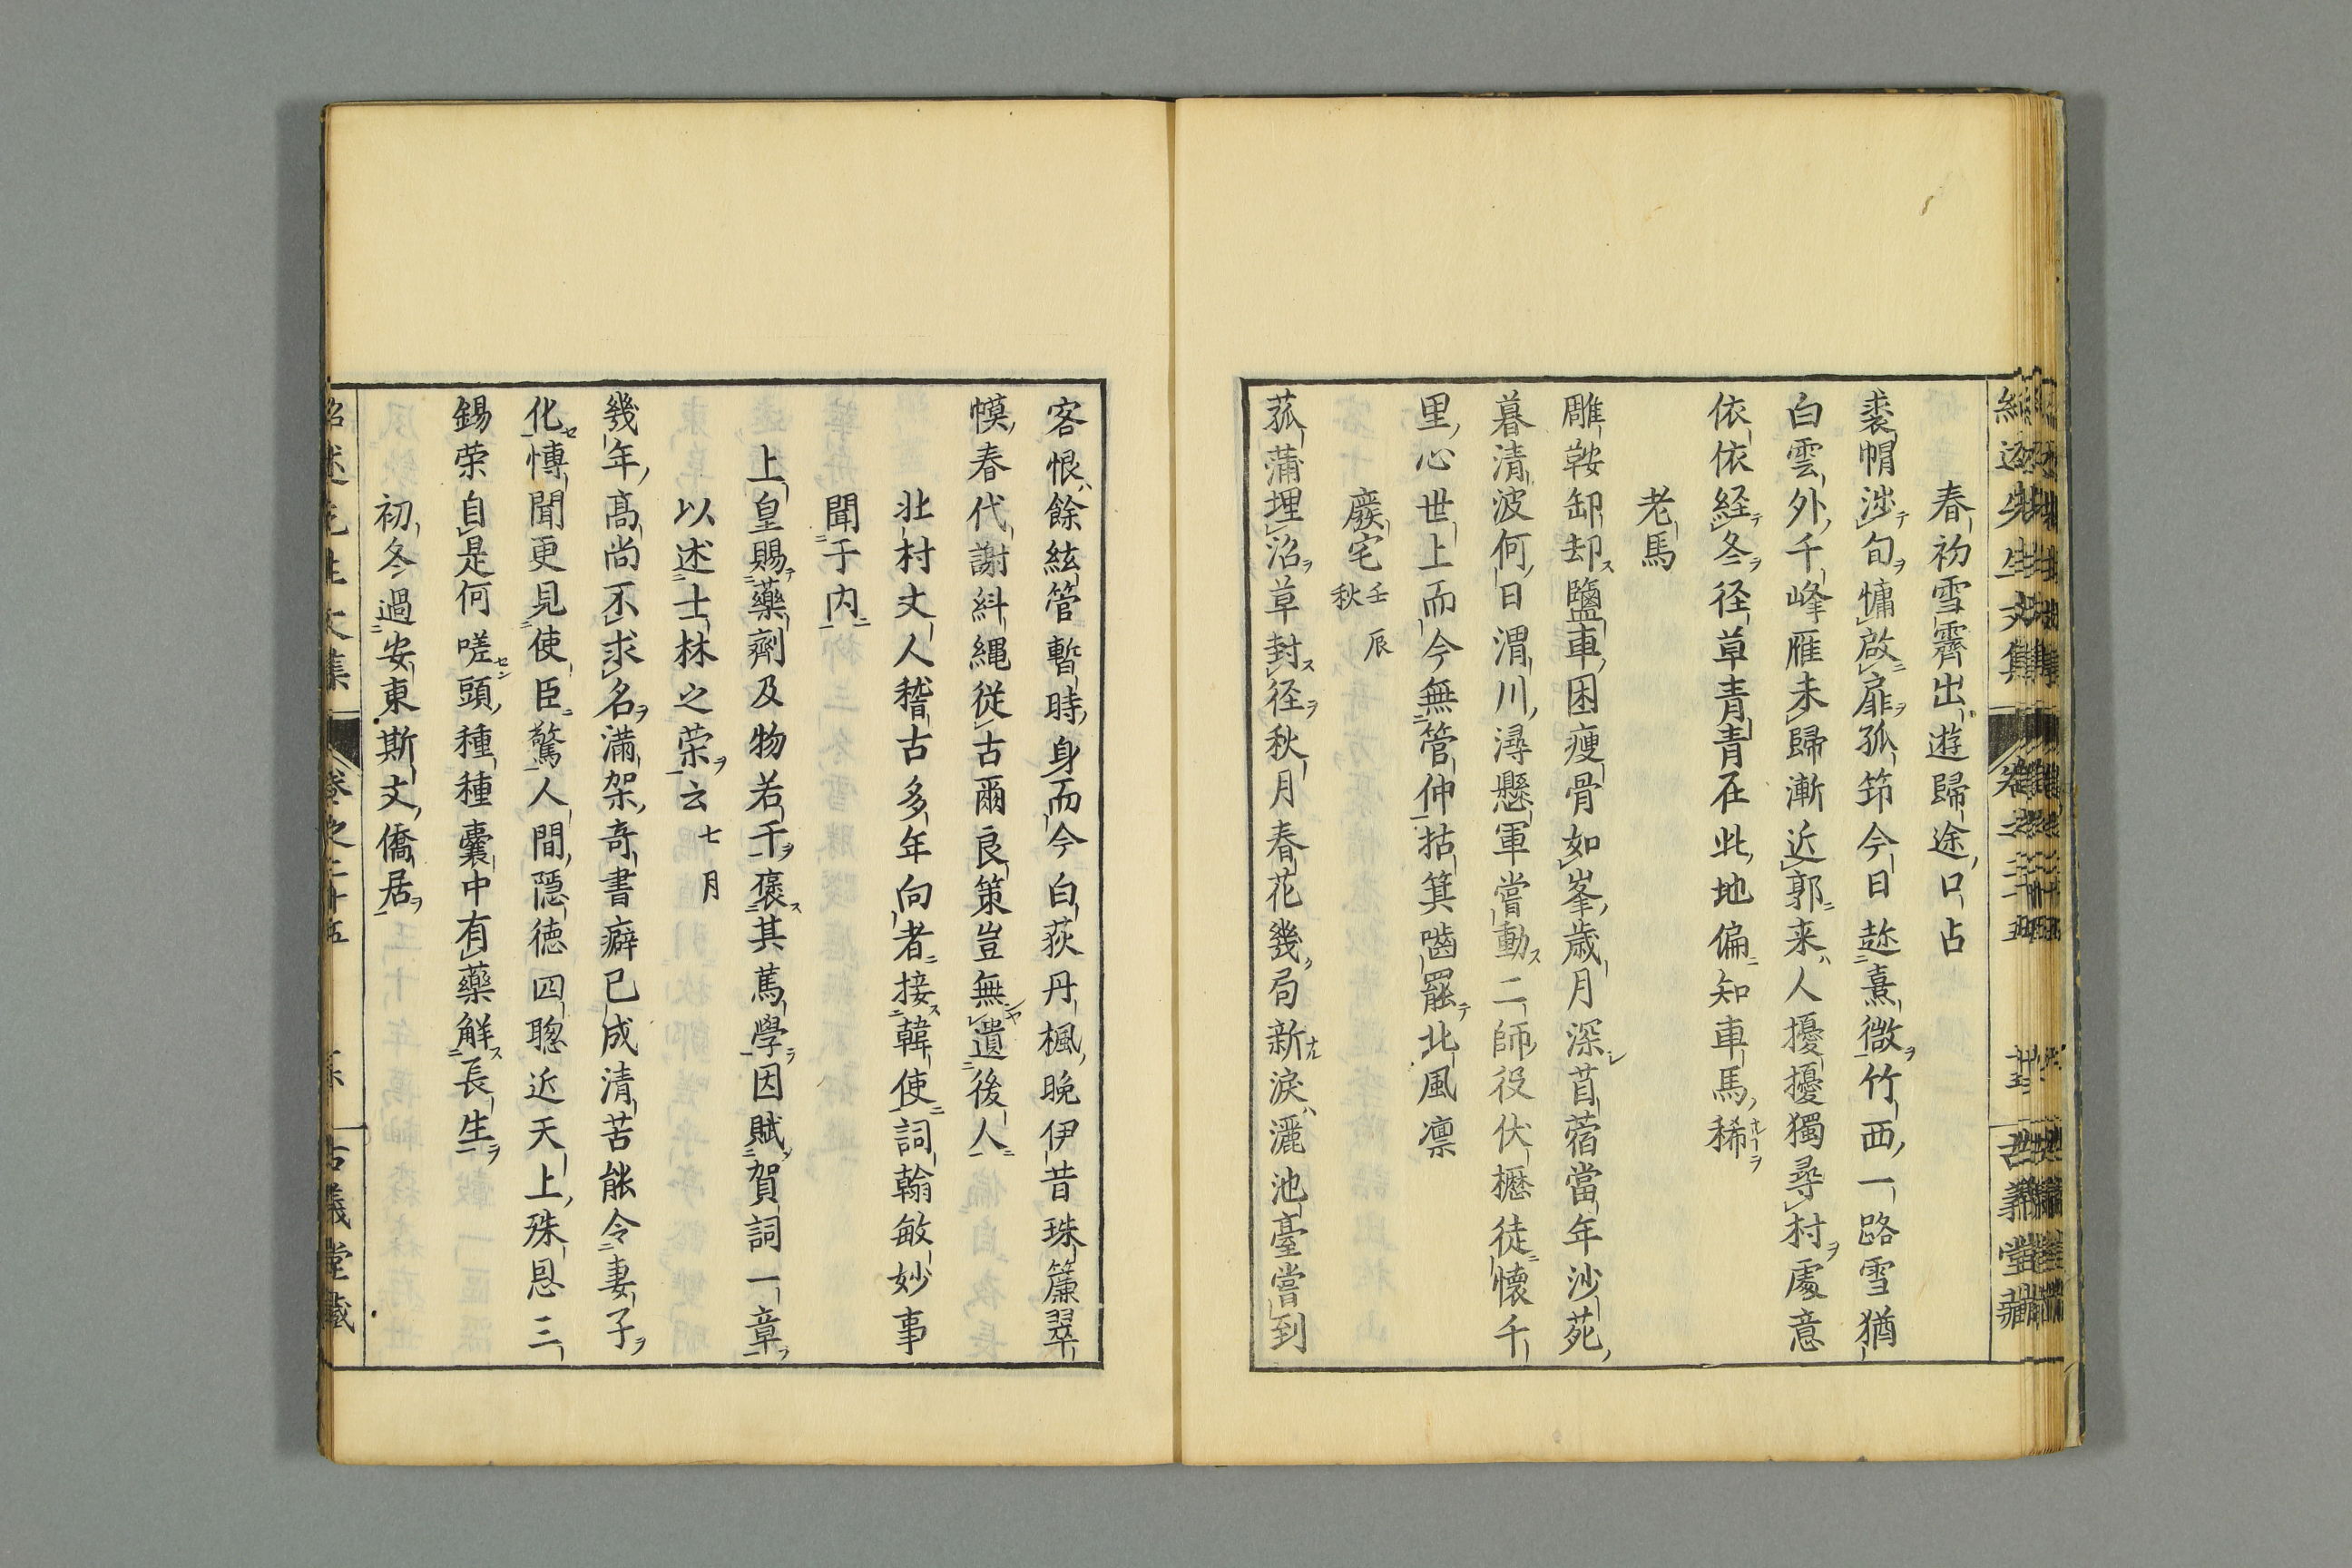 春初雪霽出遊歸途口占
裘帽渉旬慵啟扉孤笻今日趂熹微竹西一路雪猶
白雲外千峰雁未歸漸近郭来人擾擾獨尋村處意
依依経冬径草青青在此地偏知車馬稀
老馬
雕鞍卸却鹽車困瘦骨如峯歳月深苜蓿當年沙苑
暮清波何日渭川潯懸軍嘗動二師役伏櫪徒懐千
里心世上而今無管仲拈箕囓罷北風凛
廢宅 壬辰秋
菰蒲埋沼草封径秋月春花幾局新涙灑池臺嘗到
客恨餘絃管暫時身而今白荻丹楓晩伊昔珠簾翠
幙春代謝糾縄従古爾良策豈無遺後人
北村丈人稽古多年向者接韓使詞翰敏妙事
聞于内
上皇賜藥劑及物若干褒其篤學因賦賀詞一章
以述士林之荣云 七月
幾年高尚不求名滿架奇書癖已成清苦能令妻子
化慱聞更見使臣驚人間隠徳四聰近天上殊恩三
錫荣自是何嗟頭種種嚢中有藥解長生
初冬過安東斯文僑居
紹述先生文集 卷之二十五 古義堂藏